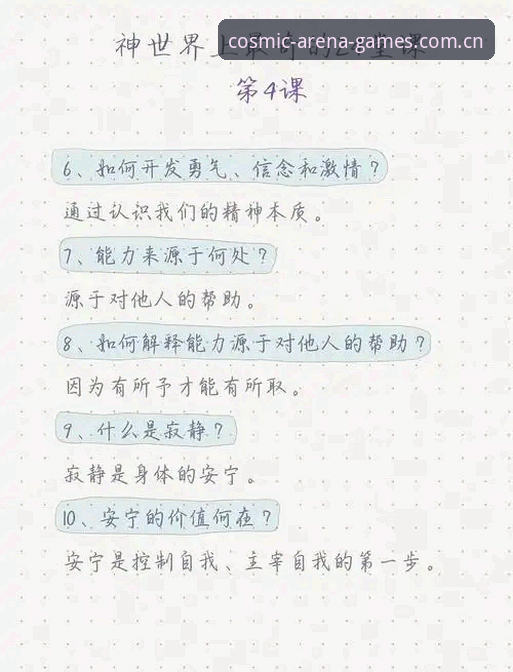 神世界上最奇的24堂课
cosmic-arena-games.com.cn
第4课
6、如何开发勇气、信念和激情？
通过认识我们的精神本质。
7、能力来源于何处？
源于对他人的帮助。
8、如何解释能力源于对他人的帮助？
因为有所予才能有所取。
9、什么是寂静？
寂静是身体的安宁。
10、安宁的价值何在？
安宁是控制自我、主宰自我的第一步。